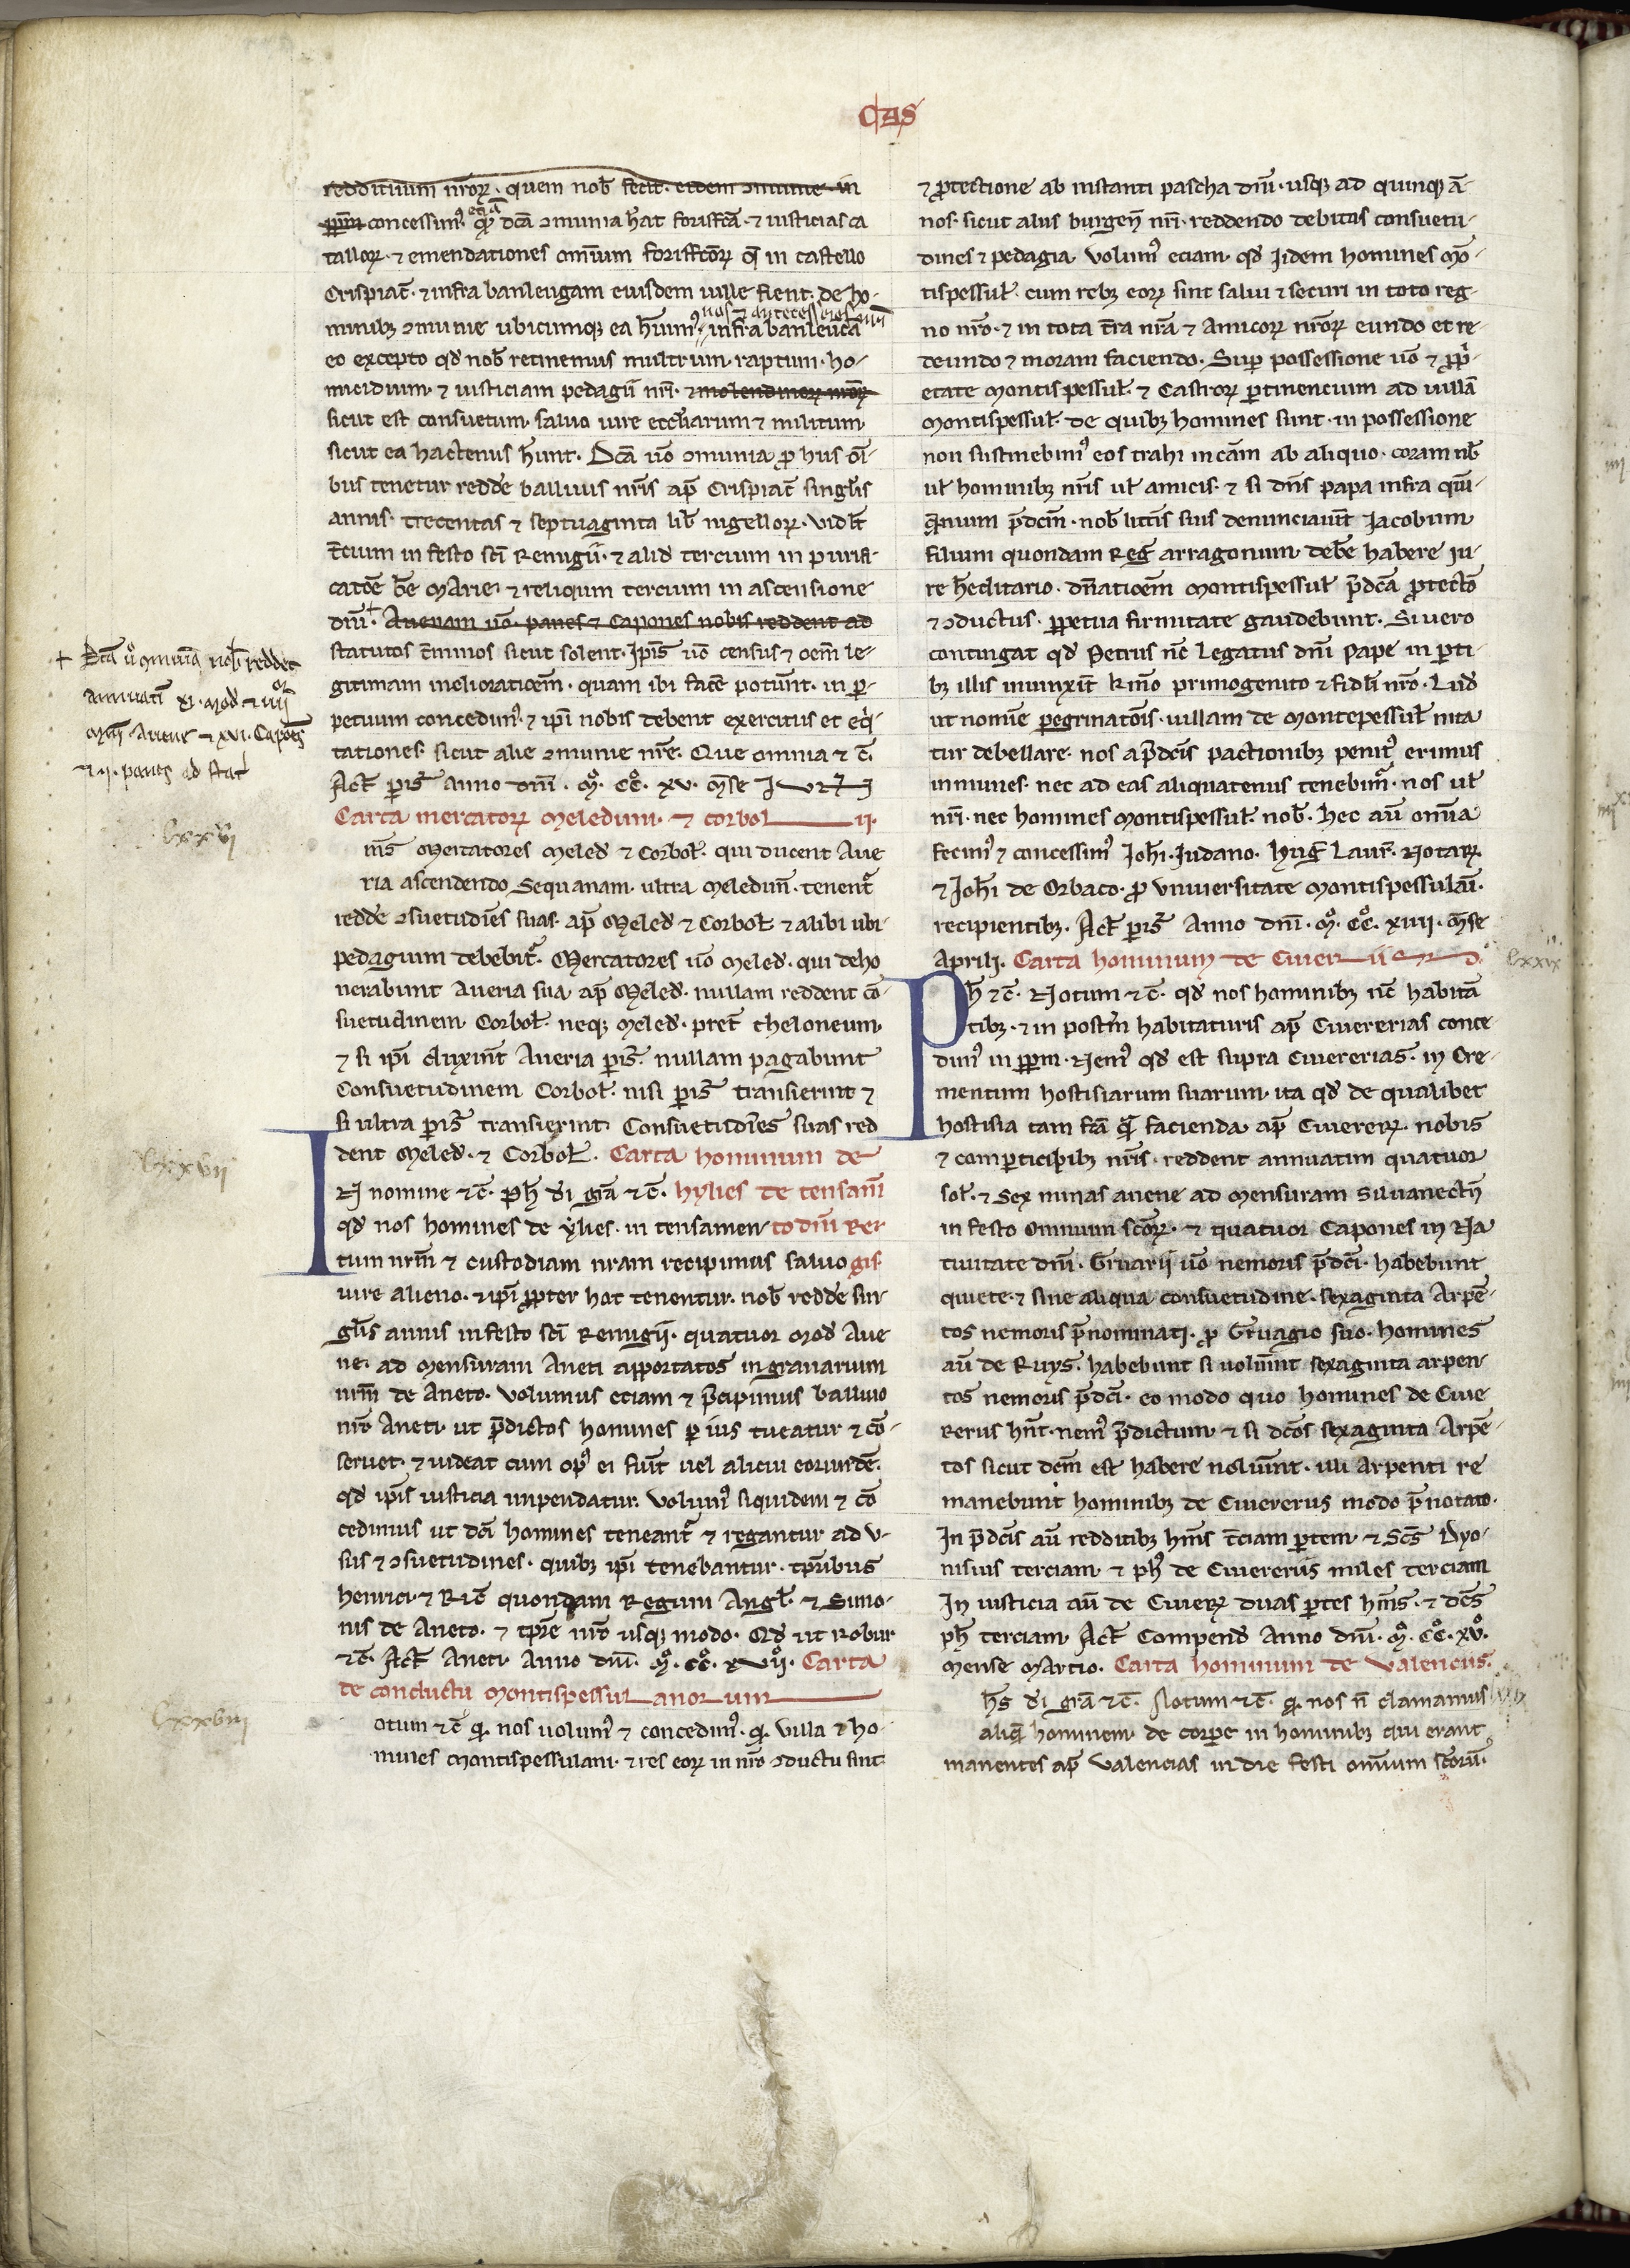 CAS
reddituum nr̄orꝝ· quem nob̄ fecit· eidem ꝯmunie in
ꝑpm̄ concessimꝰ etiā qd̄ dcā ꝯmunia h̄eat forisfc̄a· ⁊ iusticias ca
tallorꝝ· ⁊ emendationes omnium forisfc̄orꝝ q̄ in castello
Crispiac̄· ⁊ infra banleugam eiusdem uille fient· de ho-
minibꝫ ꝯmunie ubicumqꝫ ea h̄uimꝰ nos ⁊ antecessores nr̄i infra banleuca
eo excepto qd̄ nob̄ retinemus multrum· raptum· ho-
micidium· ⁊ iusticiam pedagii nr̄i· ⁊ molendinorꝝ nr̄orꝝ
sicut est consuetum· saluo iure eccl̄iarum ⁊ militum
sicut ea hactenus h̄unt· Dcā uō ꝯmunia ꝓ hiis ōi-
bus tenetur redde balliuis nr̄is ap̄ Crispiac̄ singl̄is
annis· trecentas ⁊ septuaginta lib̄ nigellorꝝ· vidl̄t
t̄cium in festo sc̄i Remigii· ⁊ aliud tercium in purifi-
catōe b̄e Marie· ⁊ reliquum tercium in ascensione
dn̄i· + Auenam uō· panes ⁊ Capones nobis reddent ad
statutos t̄minos sicut solent· Ip̄is uō census ⁊ oēm le-
gitimam meliorationem· quam ibi facē potūnt· in ꝑ-
petuum concedimꝰ· ⁊ ip̄i nobis debent exercitus et eq̄i-
tationes· sicut alie ꝯmunie nr̄e· Que omnia ⁊ c̄·
Act̄ paris̄ anno dn̄i· mº· ccº· xv· mēse
+ Dcā uº ꝯmunia nob̄ reddet
annuatī xi· mod̄ ⁊ iiiior
min̄· Auene ⁊ xvi· Capones
⁊ ii· panes ad stat̄
Carta mercatorꝝ meledun· ⁊ corbol ii·
lxxvi
m̄s mercatores meled̄ ⁊ Corbol̄· qui ducent Aue
ria ascendendo Sequanam· ultra meledun̄· tenent̄
redde ꝯsuetudīes suas· ap̄ Meled̄ ⁊ Corbol̄ ⁊ alibi ubi
pedagium debebit̄· Mercatores uō meled̄· qui deho
nerabunt Aueria sua ap̄ Meled̄· nullam reddent cō-
suetudinem Corbol̄· neqꝫ meled̄· pret̄ theloneum
⁊ si ip̄i duxint̄ Aueria paris̄· nullam pagabunt
Consuetudinem Corbol̄· nisi paris̄ transierint ⁊
si ultra paris̄ transierint Consuetudīes suas red
dent Meled̄· ⁊ Corbol̄· Carta hominum de
lxxvii
IN nomine ⁊c̄· Ph̄ di grā ⁊c̄· hylies de tensam̄
qd̄ nos homines de ylies· in tensamen- to dn̄i Re-
tum nr̄m ⁊ custodiam nr̄am recipimus saluo gis·
iure alieno· ⁊ ip̄i ꝓpter hoc tenentur· nob̄ redde sin-
gl̄is annis in festo sc̄i Remigii· quatuor mod̄ Aue
ne· ad mensuram Aneti apportatos in granarium
nr̄m de Aneto· Volumus eciam ⁊ p̄cipimus balliuo
nr̄o Aneti· ut p̄dictos homines per ius tueatur ⁊ cō-
seruet· ⁊ uideat cum opꝰ ei fuit̄ uel alicui eorumdē·
qd̄ ip̄is iusticia impendatur· Volumꝰ siquidem ⁊ cō
cedimus ut dc̄i homines teneant̄ ⁊ regantur ad v-
sus ⁊ ꝯsuetudines· quibꝫ ip̄i tenebantur· tp̄ribus
henrici· ⁊ Ric̄ quondam Regum Angl̄· ⁊ Simo-
nis de Aneto· ⁊ tp̄re nr̄o usqꝫ modo· Qd̄ ut robur
⁊c̄· Act̄ Aneti· Anno dn̄i· mº· ccº· xviiº· Carta
de conductu montispessulanorum
lxxviii
otum ⁊c̄ qd̄ nos uolumꝰ ⁊ concedimꝰ· qd̄ villa ⁊ ho
mines Montispessulani· ⁊ res eorꝝ in nr̄o ꝯductu sint
⁊ ꝓtectione ab instanti pascha dn̄i· usqꝫ ad quinqꝫ ā-
nos· sicut alius burgen̄ nr̄i· reddendo debitas consuetu-
dines ⁊ pedagia· Volumꝰ eciam qd̄ Iidem homines mō-
tispessul̄· cum rebꝫ eorꝝ sint salui ⁊ securi in toto reg-
no nr̄o· ⁊ in tota t̄ra nr̄a ⁊ Amicorꝝ nr̄orꝝ eundo et re-
deundo ⁊ moram faciendo· Super possessione uō ⁊ ꝓp̄i-
etate montispessul̄· ⁊ Castrorꝝ pertinencium ad uillā
Montispessul̄· de quibꝫ homines sunt· in possessione
non sustinebimꝰ eos trahi in cām ab aliquo· coram nb̄
ul̄ hominibꝫ nr̄is ul̄ amicis· ⁊ si dn̄s papa infra quī-
q̄nnium p̄dcm̄· nob̄ litt̄is suis denunciauit̄ Iacobum
filium quondam Reg̃ arragonum debe habere iu-
re h̄editario· dn̄ationem montispessul̄ p̄dcā ꝓtectō
⁊ ꝯductus· ꝑpetua firmitate gaudebunt· Si uero
contingat qd̄ Petrus nc̄ Legatus dn̄i Pape in ꝑti-
bꝫ illis iniunxit̄ k̄mo primogenito ⁊ fidl̄i nr̄o· Lud̄
ut nomīe peregrinatōis· uillam de Montepessul̄ nita
tur debellare· nos a p̄dcis pactionibꝫ penitꝰ erimus
inmunes· nec ad eas aliquatenus tenebim̄· nos ul̄
nr̄i· nec homines montispessul̄· nob̄· hec aū omīa
fecimꝰ ⁊ concessimꝰ Ioh̄i· Iudano· hug̃ Laur̄· Notarꝝ·
⁊ Ioh̄i de Orbaco· ꝓ vniuersitate montispessulan̄·
recipientibꝫ· Act̄ paris̄ Anno dn̄i· mº· ccº· xiiii· mēse
Aprili· Carta hominum de Ciuer
lxxix
Ph̄ ⁊c̄· Notum ⁊c̄· qd̄ nos hominibꝫ nc̄ habitā
tibꝫ· ⁊ in post̄m habitaturis ap̄ Ciuererias conce
dimꝰ in ꝑpm̄· Nemꝰ qd̄ est supra Ciuererias· in Cre-
mentum hostisiarum suarum· ita qd̄ de qualibet
hostisia tam fcā q̄m facienda ap̄ Ciuererꝝ· nobis
⁊ comparticipibꝫ nr̄is· reddent annuatim quatuor
sol̄· ⁊ Sex minas auene ad mensuram siluanecten̄
in festo Omnium scōrꝝ· ⁊ quatuor Capones in Na
tiuitate dn̄i· Gruarii uō nemoris p̄dci· habebunt
quiete· ⁊ sine aliqua consuetudine· sexaginta Arpē-
tos nemoris p̄nominati· ꝓ Gruagio suo· homines
aū de Ruys· habebunt si uolūint sexaginta arpen-
tos nemoris p̄dci· eo modo quo homines de Ciue
reriis hn̄t· nemꝰ p̄dictum· ⁊ si dcōs sexaginta Arpē-
tos sicut dcm̄ est habere noluīnt· illi Arpenti re
manebunt hominibꝫ de Ciuereriis modo p̄notato·
In p̄dcis aū redditibꝫ hem̄s t̄ciam ꝑtem· ⁊ Scs̄ Dyo-
nisius terciam· ⁊ ph̄ de Ciuereriis miles terciam
In iusticia aū de Ciuererꝝ duas ꝑtes hem̄s· ⁊ dcs̄
ph̄ terciam· Act̄ Compend̄ Anno dn̄i· mº· ccº· xvº·
mense Marcio· Carta hominum de Valenciis·
h̄s di grā ⁊c̄· Notum ⁊c̄· qd̄ nos n̄ clamamus
aliqd̄ hominem· de corpore in hominibꝫ qui erant
manentes ap̄ Valencias in die festi omnium scōrū·